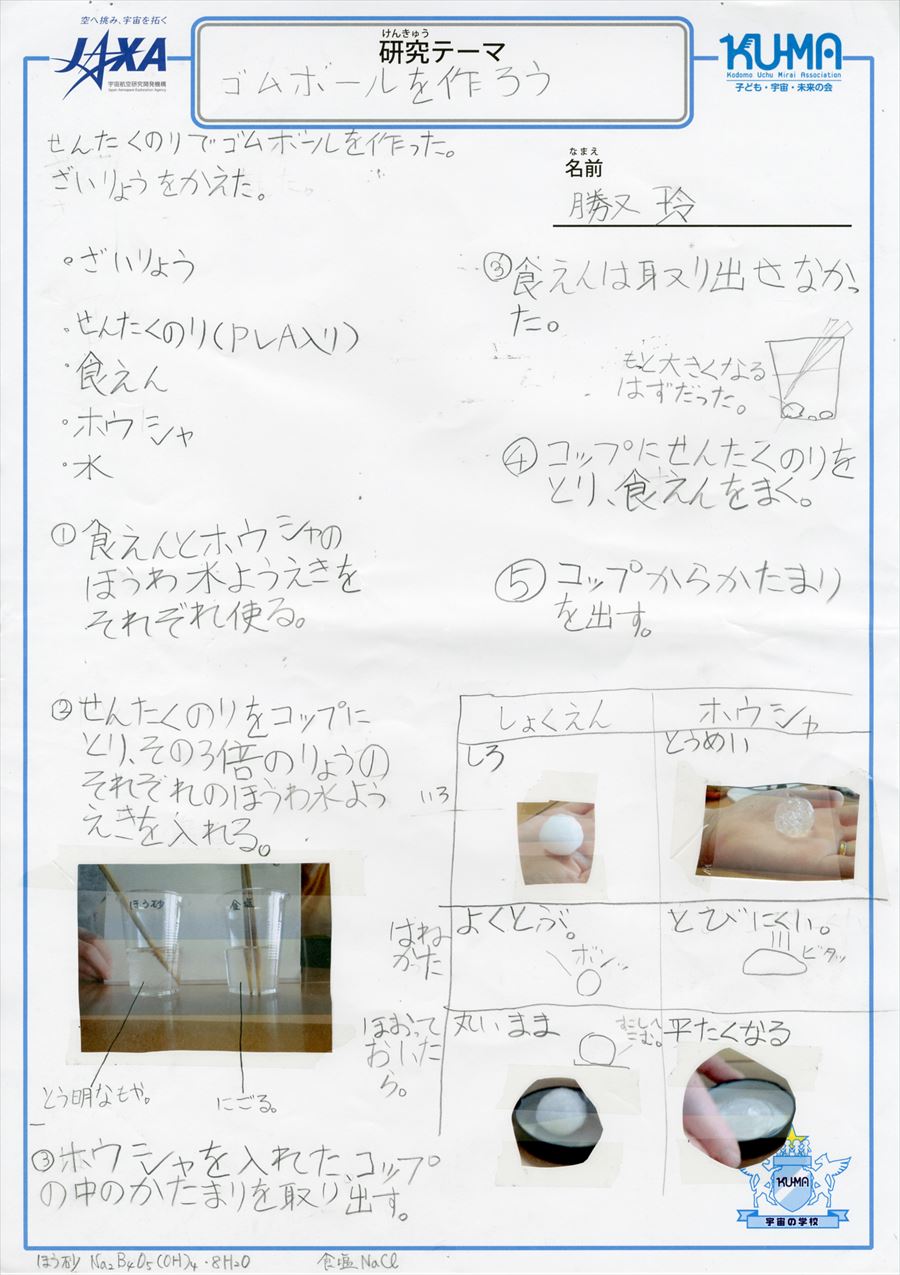 空へ挑み、宇宙を拓く
JAXA
宇宙航空研究開発機構
Japan Aerospace Exploration Agency
けんきゅう
研究テーマ
ゴムボールを作ろう
KU-MA
Kodomo Uchu Mirai Association
子ども・宇宙・未来の会
せんたくのりでゴムボールを作った。
ざいりょうをかえた。
なまえ
名前
勝又 玲
・ざいりょう
・せんたくのり(PLA入り)
・食えん
・ホウシャ
・水
①食えんとホウシャの
ほうわ水ようえきを
それぞれ使る。
②せんたくのりをコップに
とり、その3倍のりょうの
それぞれのほうわ水よう
えきを入れる。
ほう砂
食塩
とう明なもや。
にごる。
③ホウシャを入れたコップ
の中のかたまりを取り出す。
③食えんは取り出せなかっ
た。
もっと大きくなる
はずだった。
④コップにせんたくのりを
とり、食えんをまく。
⑤コップからかたまり
を出す。
しょくえん
ホウシャ
いろ
しろ
とうめい
はね
かた
よくとぶ。
ボンッ
とびにくい。
ビタッ
ほおって
おいた
ら。
丸いまま
すこしへ
こむ。
平たくなる
KU-MA
宇宙の学校
ほう砂 Na2B4O5(OH)4・8H2O
食塩 NaCl